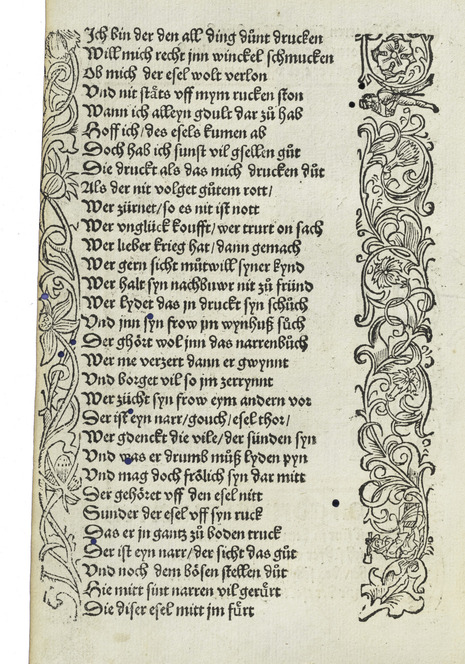 Ich bin der den all ding dünt drucken
Will mich recht jnn winckel schmucken
Ob mich der esel wolt verlon
Vnd nit stäts vff mym rucken ston
Wann ich alleyn gdult dar zů hab
Hoff ich/des esels kumen ab
Doch hab ich sunst vil gsellen gůt
Die druckt als das mich drucken důt
Als der nit volget gůtem rott/
Wer zürnet/so es nit ist nott
Wer vnglück koufft/wer trurt on sach
Wer lieber krieg hat/dann gemach
Wer gern sicht můtwill syner kynd
Wer halt syn nachbuwr nit zů fründ
Wer lydet das jn druckt syn schůch
Vnd jnn syn frow jm wynhuß sůch
Der ghört wol jnn das narrenbůch
Wer me verzert dann er gwynnt
Vnd borget vil so jm zerrynnt
Wer zücht syn frow eym andern vor
Der ist eyn narr/gouch/esel thor/
Wer gdenckt die vile/der sünden syn
Vnd was er drumb můß lyden pyn
Vnd mag doch frölich syn dar mitt
Der gehöret vff den esel nitt
Sunder der esel vff syn ruck
Das er jn gantz zů boden truck
Der ist eyn narr/der sicht das gůt
Vnd noch dem bösen stellen důt
Hie mitt sint narren vil gerürt
Die diser esel mitt jm fürt